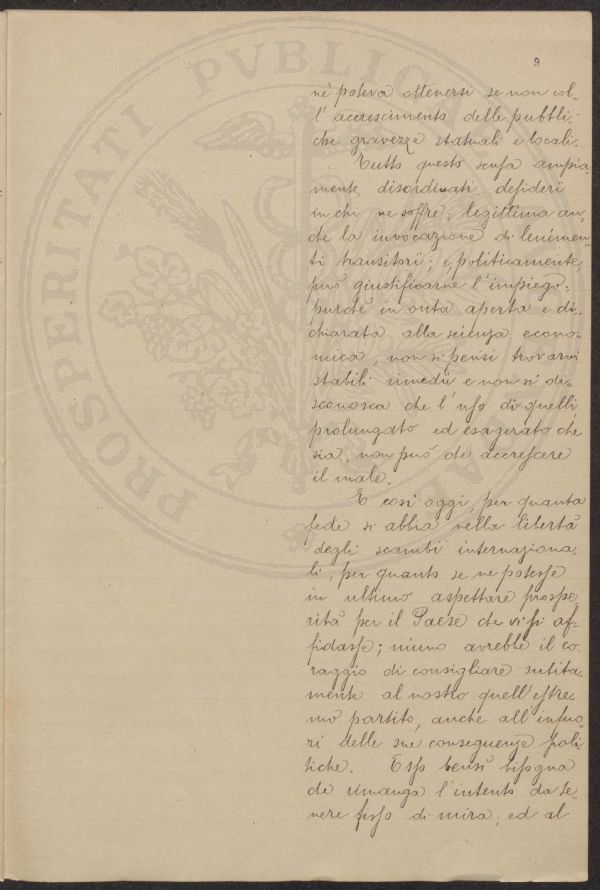 9
PROSPERITATI PVBLIC
nè poteva ottenersi se non col-
l'accrescimento delle pubbli-
che gravezze statuali e locali.
Tutto questo scusa ampia
mente disordinati desideri
in chi ne soffre; legittima an-
che la invocazione di lenimen-
ti transitori; e, politicamente,
può giustificarne l'impiego:
purchè in onta aperta e di-
chiarata alla scienza econo-
mica, non si pensi trovarvi
stabili rimedii e non si di-
sconosca che l'uso di quelli,
prolungato ed esagerato che
sia, non può che accrescere
il male.
E così oggi, per quanta
fede si abbia nella libertà
degli scambii internaziona-
li, per quanto se ne potesse
in ultimo aspettare prospe
rità per il Paese che vi si af-
fidasse; niuno avrebbe il co-
raggio di consigliare subita-
mente al nostro quell'estre-
mo partito, anche all'infuo-
ri delle sue conseguenze poli-
tiche. Esso bensì bisogna
che rimanga l'intento da te-
nere fisso di mira, ed al